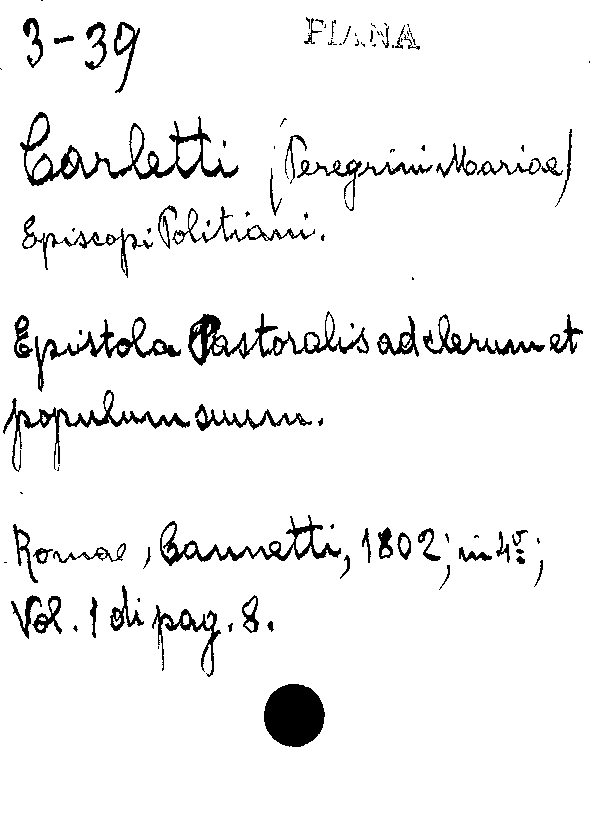 3-39 PIANA
Carletti (Peregrini Mariae)
Episcopi Politiani.
Epistola Pastoralis ad clerum et
populum suum.
Romae, Cannetti, 1802; in 4º;
Vol. 1 di pag. 8.